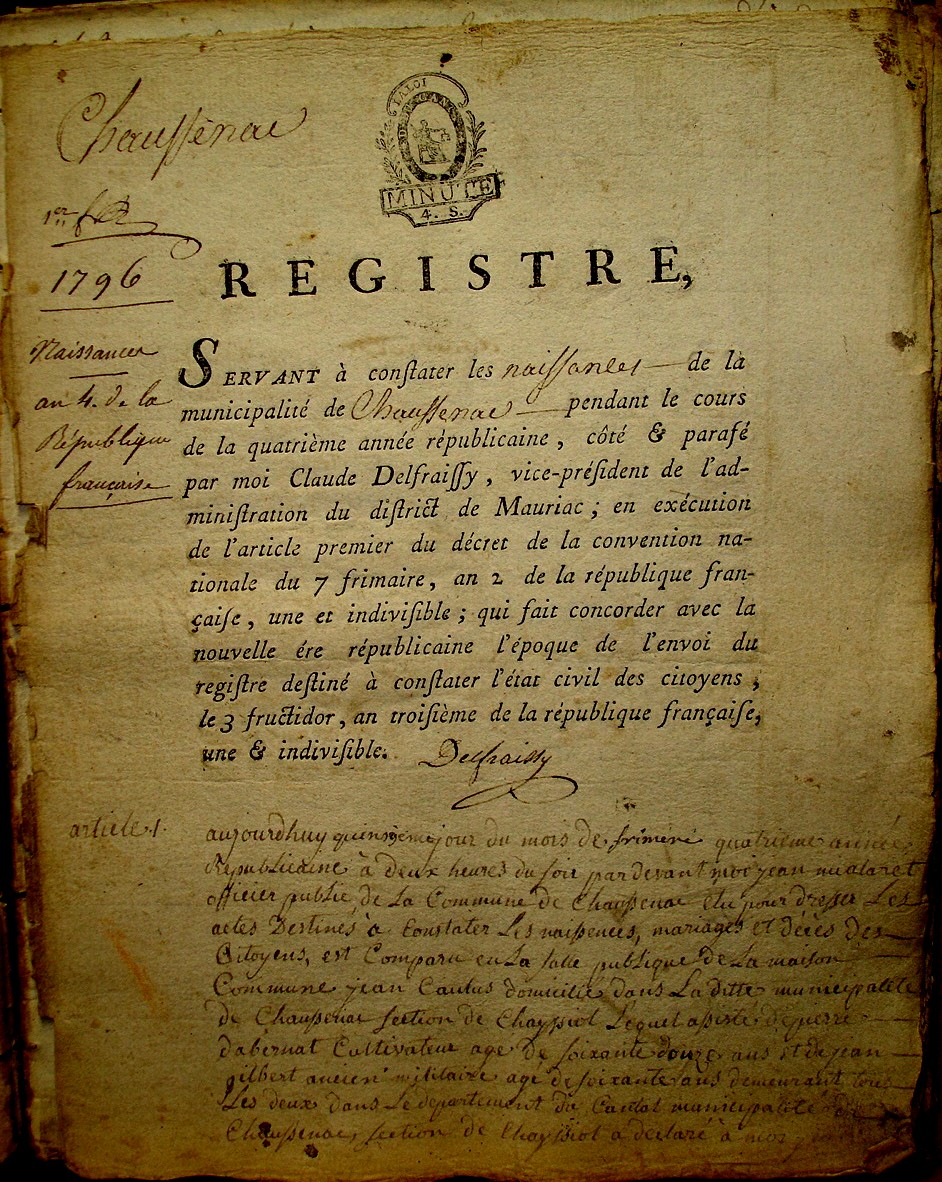 Chaussenac
LA LOI
MINUTE
4. S.
1er
1796
REGISTRE,
Naissances
an 4. de la
République
française
SERVANT à conſtater les naiſſances de la
municipalité de Chauſſenac pendant le cours
de la quatrième année républicaine, côté & parafé
par moi Claude Delfraiſſy, vice-préſident de l'ad-
miniſtration du diſtrict de Mauriac; en exécution
de l'article premier du décret de la convention na-
tionale du 7 frimaire, an 2 de la république fran-
çaiſe, une et indiviſible; qui fait concorder avec la
nouvelle ére républicaine l'époque de l'envoi du
regiſtre deſtiné à conſtater l'état civil des citoyens,
le 3 fructidor, an troiſième de la république françaiſe,
une & indiviſible. Delfraissy
article 1.
aujourdhuy quinsième jour du mois de frimere quatrieme année
Republicaine à deux heures du soir par devant moi jean
officier public de La Commune de Chaussenac élu pour dresser Les
actes Destinés à Constater Les naissences, mariages et décès des
Citoyens, est Comparu en La salle publique de La maison
Commune jean Caulus domicilié dans La ditte municipalité
de Chaussenac section de Chayssiol Lequel assisté de pierre
dabernat Cultivateur agé de soixante douze ans et de jean
gilbert ancien militaire agé de soixante ans demeurant tous
Les deux dans Le departement du Cantal municipalité de
Chaussenac, section de Chayssiol a déclaré à moy